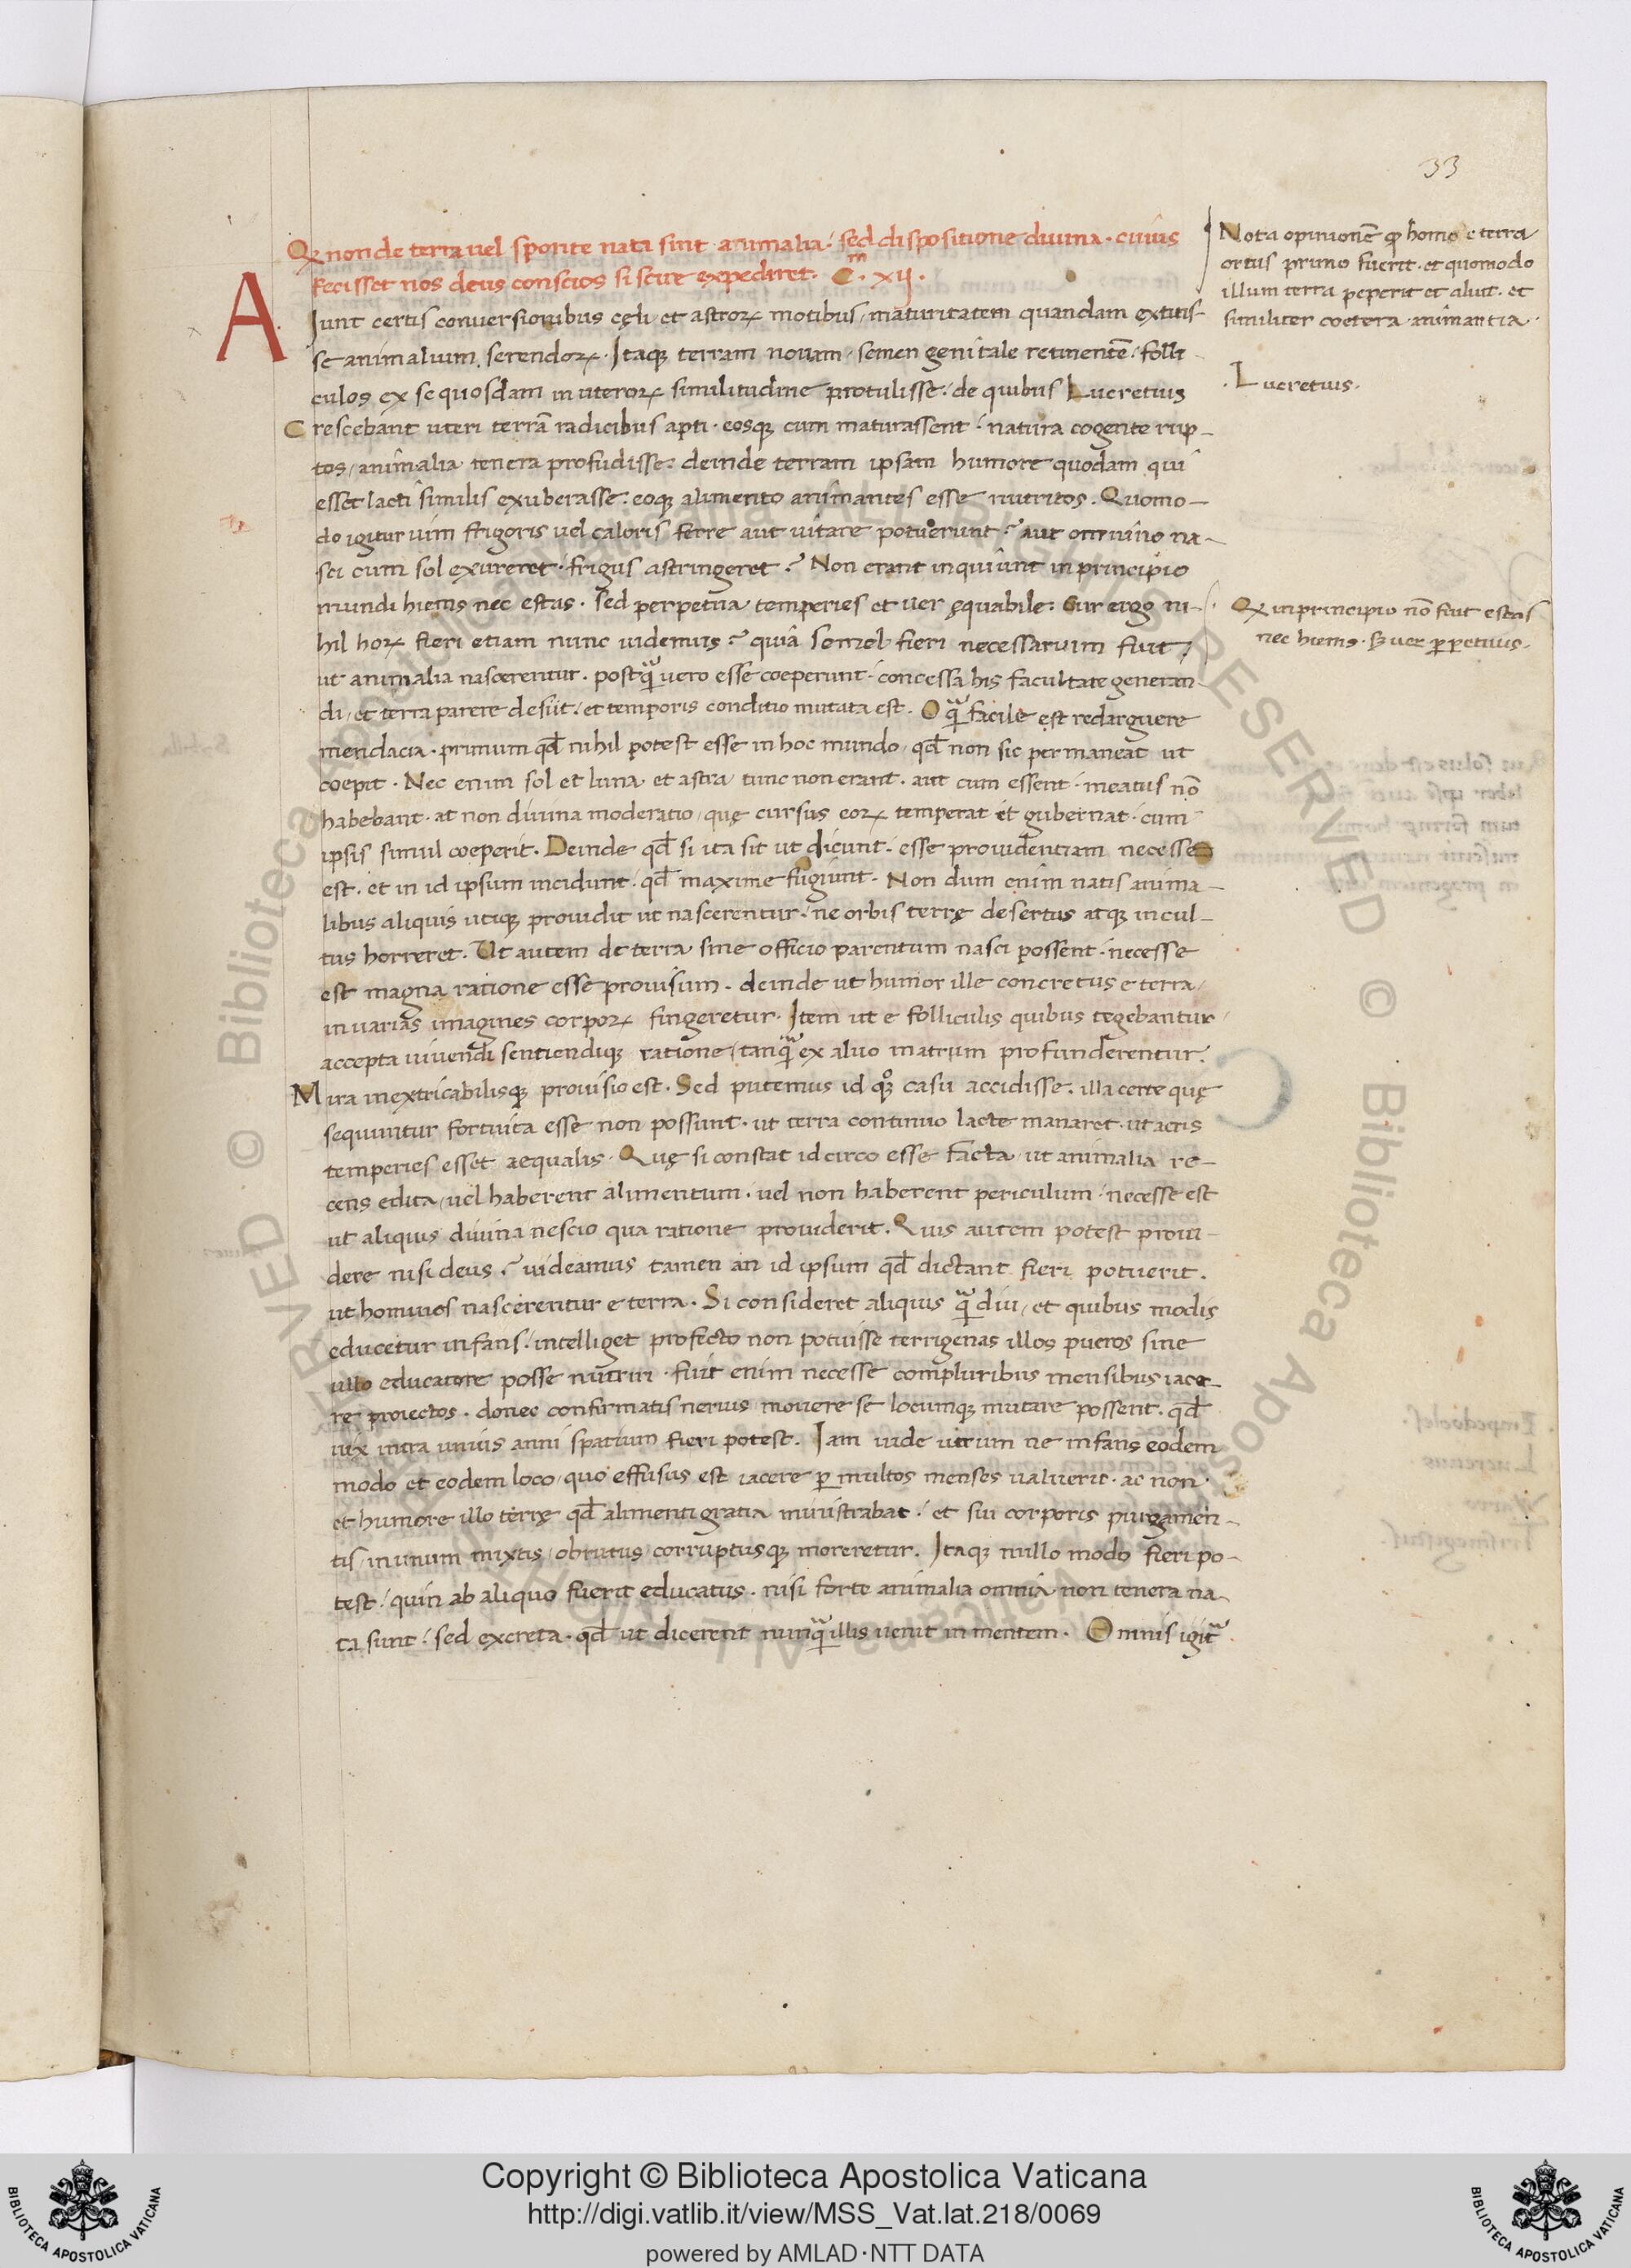 33
Qꝫ non de terra uel sponte nati sint animalia: sed dispositione diuina. cuius
fecisset nos deus conscios si scire expediret. C.m xij.
A Iunt certis conuersionibus cęli et astroꝝ motibus, maturitatem quandam extitis-
se animalium serendoꝝ. Itaqꝫ terram nouam semen genitale retinentē: folli
culos ex se quosdam in uteroꝝ similitudinē protulisse. de quibus Lucretius
Crescebant uteri terrā radicibus apti. eosqꝫ cum maturassent: natura cogente rup-
tos, animalia tenera profudisse: deinde terram ipsam humore quodam qui
esset lacti similis exuberasse: eoqꝫ alimento animantes esse nutritos. Quomo-
do igitur uim frigoris uel caloris ferre aut uitare potuerunt? aut omnino na-
sci cum sol exureret. frigus astringeret? Non erant inquiunt in principio
mundi hiems nec estas. sed perpetua temperies et uer ęquabile: Cur ergo ni-
hil hoꝝ fieri etiam nunc uidemus? quia semel fieri necessarium fuit,
ut animalia nascerentur. postq̃ uero esse coeperunt: concessa his facultate generan
di, et terra parere desiit, et temporis conditio mutata est. O q̃ facile est redarguere
mendacia. primum qđ nihil potest esse in hoc mundo, qđ non sic permaneat ut
coepit. Nec enim sol et luna. et astra, tunc non erant. aut cum essent. meatus nō
habebant. at non diuina moderatio, quę cursus eoꝝ temperat et gubernat. cum
ipsis simul coeperit. Deinde qđ si ita sit ut dicunt. esse prouidentiam necesse
est. et in id ipsum incidunt. qđ maxime fugiunt. Non dum enim natis anima-
libus aliquis utiqꝫ prouidit ut nascerentur. ne orbis terrę desertus atqꝫ incul-
tus horreret. Ut autem de terra sine officio parentum nasci possent. necesse
est magna ratione esse prouisum. deinde ut humor ille concretus e terra,
in uarias imagines corpoꝝ fingeretur. Item ut e folliculis quibus tegebantur,
accepta uiuendi sentiendiqꝫ ratione, tanq̃ ex aluo matrum profunderentur.
Mira inextricabilisqꝫ prouisio est. Sed putemus id qꝫ casu accidisse. illa certe quę
sequuntur fortuita esse non possunt. ut terra continuo lacte manaret. ut aeris
temperies esset aequalis. Quę si constat idcirco esse facta, ut animalia re-
cens edita, uel haberent alimentum. uel non haberent periculum. necesse est
ut aliquis diuina nescio qua ratione prouiderit. Quis autem potest proui-
dere nisi deus? uideamus tamen an id ipsum qđ dictant fieri potuerit.
ut homines nascerentur e terra. Si consideret aliquis q̃ diu, et quibus modis
educetur infans. intelliget profecto non potuisse terrigenas illos pueros sine
ullo educatore posse nutriri. fuit enim necesse compluribus mensibus iace-
re proiectos. donec confirmatis neruis mouere se locumqꝫ mutare possent. qđ
uix intra unius anni spatium fieri potest. Iam uide utrum ne infans eodem
modo et eodem loco, quo effusus est iacere ꝑ multos menses ualuerit. ac non
et humore illo terrę qđ alimenti gratia ministrabat. et sui corporis purgamen-
tis, in unum mixtis, obrutus, corruptusqꝫ moreretur. Itaqꝫ nullo modo fieri po-
test: quin ab aliquo fuerit educatus. nisi forte animalia omnia non tenera na-
ta sunt: sed excreta. qđ ut dicerent nunq̃ illis uenit in mentem. Omnis igit̃
Nota opinionē ꝙ homo e terra
ortus primo fuerit. et quomodo
illum terra peperit et aluit. et
similiter coetera animantia.
. Lucretius.
Qꝫ in principio nō fuit estas
nec hiems. sꝫ uer ꝑpetuus.
Copyright © Biblioteca Apostolica Vaticana
http://digi.vatlib.it/view/MSS_Vat.lat.218/0069
powered by AMLAD·NTT DATA
BIBLIOTECA APOSTOLICA VATICANA
BIBLIOTECA APOSTOLICA VATICANA